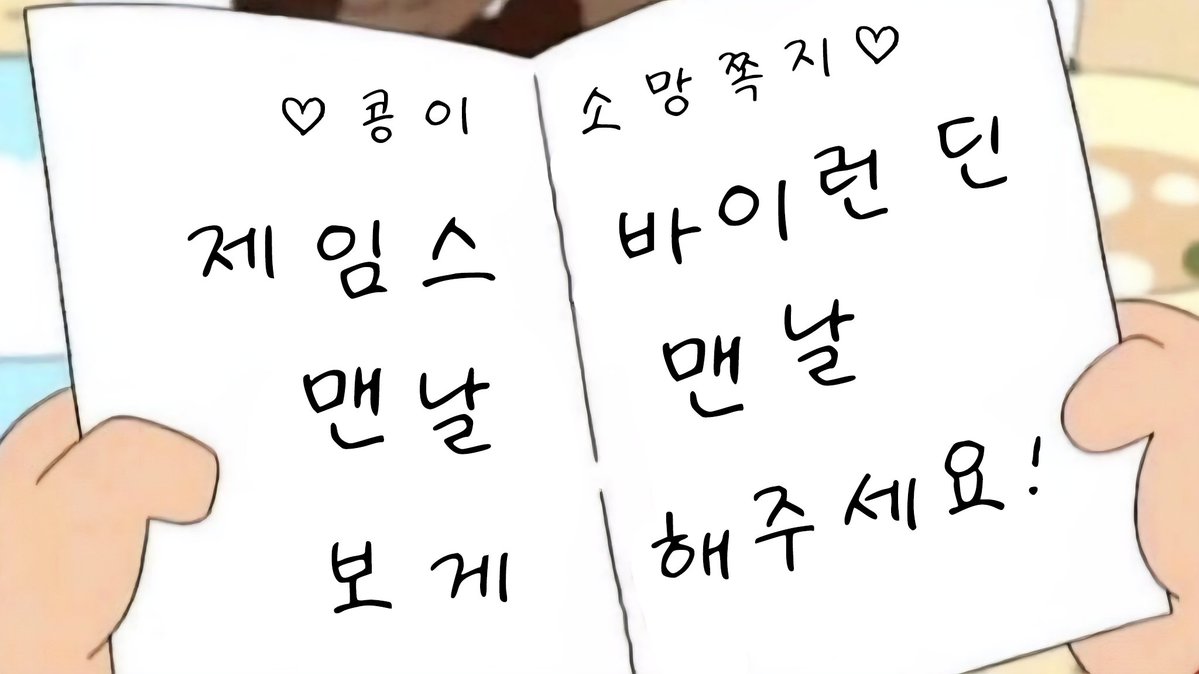 ♡ 콩이 소망쪽지 ♡
제임스 바이런 딘
맨날 맨날
보게 해주세요!